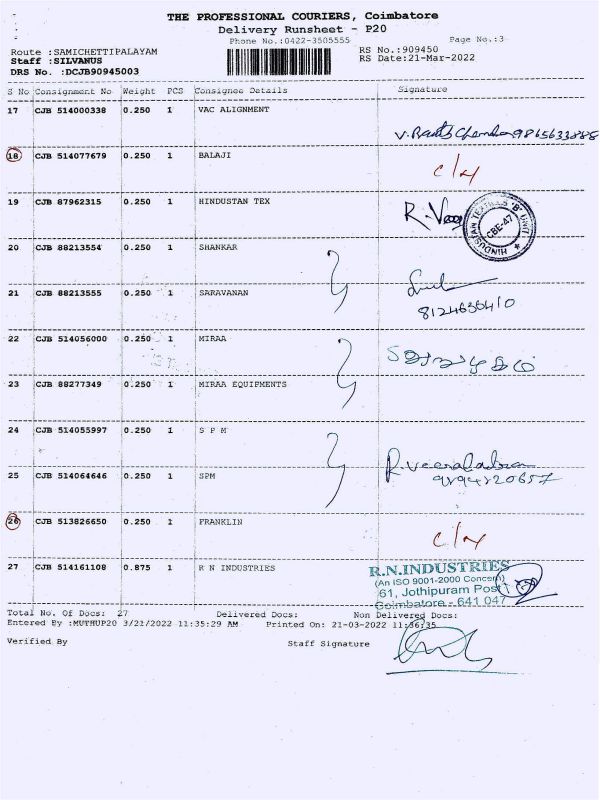 THE PROFESSIONAL COURIERS, Coimbatore
Delivery Runsheet - P20
Phone No.:0422-3505555
Page No.:3
Route :SAMICHETTIPALAYAM
RS No.:909450
Staff :SILVANUS
RS Date:21-Mar-2022
DRS No. :DCJB90945003
S No Consignment No Weight PCS Consignee Details Signature
17 CJB 514000338 0.250 1 VAC ALIGNMENT
18 CJB 514077679 0.250 1 BALAJI
19 CJB 87962315 0.250 1 HINDUSTAN TEX
HINDUSTAN TEXTILES 'B' UNIT
CBE-47
20 CJB 88213554 0.250 1 SHANKAR
21 CJB 88213555 0.250 1 SARAVANAN
22 CJB 514056000 0.250 1 MIRAA
23 CJB 88277349 0.250 1 MIRAA EQUIPMENTS
24 CJB 514055997 0.250 1 S P M
25 CJB 514064646 0.250 1 SPM
26 CJB 513826650 0.250 1 FRANKLIN
27 CJB 514161108 0.875 1 R N INDUSTRIES
R.N.INDUSTRIES
(An ISO 9001-2000 Concern)
61, Jothipuram Post
Coimbatore - 641 047
Total No. Of Docs: 27 Delivered Docs: Non Delivered Docs:
Entered By :MUTHUP20 3/21/2022 11:35:29 AM Printed On: 21-03-2022 11:36:35
Verified By Staff Signature